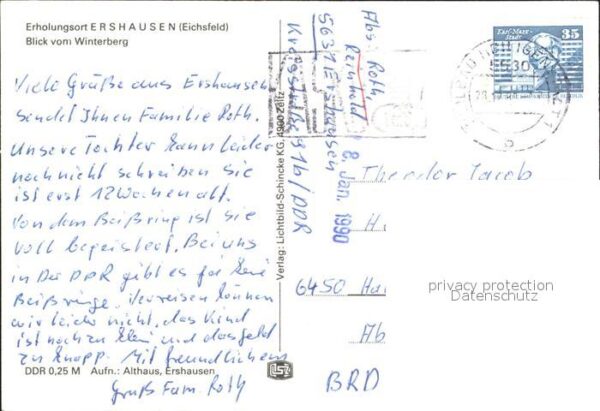 Erholungsort ERSHAUSEN (Eichsfeld)
Blick vom Winterberg
Viele Grüße aus Ershausen
sendet Ihnen Familie Roth.
Unsere Tochter kann leider
noch nicht schreiben sie
ist erst 12 Wochen alt.
Von dem Beißring ist sie
voll begeistert. Bei uns
in der DDR gibt es für keine
Beißringe. Verreisen können
wir leider nicht, das Kind
ist noch zu klein und das Geld
zu knapp. Mit freundlichem
Gruß Fam. Roth
DDR 0,25 M Aufn.: Althaus, Ershausen
Verlag: Lichtbild-Schincke KG, 4900 Zeitz
Abs: Roth,
Reinhold
5631 Ershausen
Kreisstraße 91b / DDR
8. Jan. 1990
Karl-Marx-
Stadt
35
HEILIGENSTADT 1
Theodor Jacob
6450
BRD
privacy protection
Datenschutz